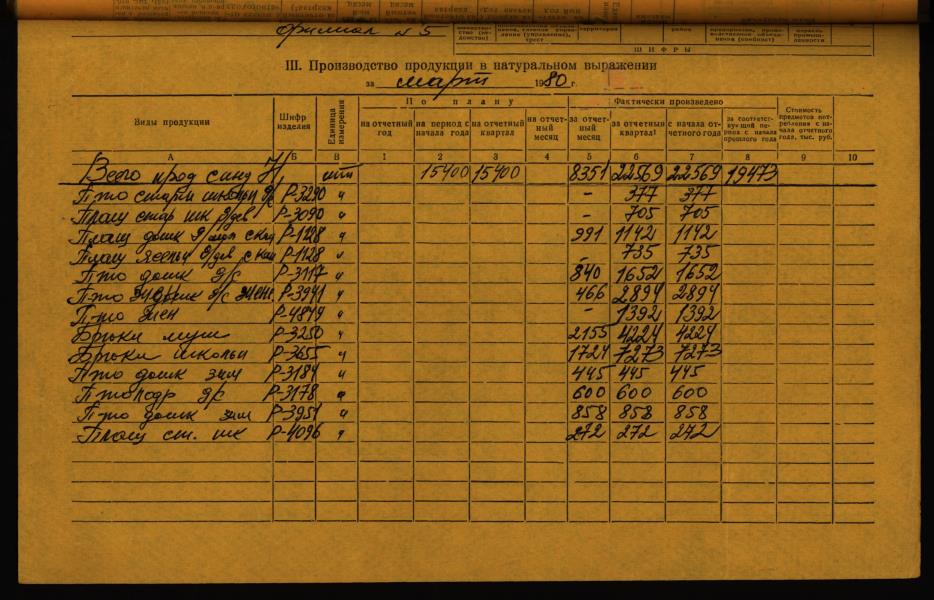 филиал № 5
ШИФРЫ
III. Производство продукции в натуральном выражении
за март 1980 г.
Виды продукции Шифр изделия Единица измерения По плану Фактически произведено Стоимость предметов потребления с начала отчетного года, тыс. руб.
на отчетный год на период с начала года на отчетный квартал на отчетный месяц за отчетный месяц за отчетный квартал с начала отчетного года за соответствующий период с начала прошлого года
А Б В 1 2 3 4 5 6 7 8 9 10
Всего прод шт 15400 15400 8351 22569 22569 19473
П-то д/с Р-3290 " - 377 377
Плащ стар шк д/дев Р-3090 " - 705 705
Плащ дошк Р-1128 " 991 1142 1142
Плащ д/дев Р-1128 " - 735 735
П-то дошк д/с Р-3117 " 840 1652 1652
П-то д/с Р-3941 " 466 2894 2894
П-то жен Р-4849 " - 1392 1392
Брюки муж Р-3250 " 2155 4224 4224
Брюки школьн Р-3655 " 1724 7273 7273
П-то дошк зим Р-3184 " 445 445 445
П-то подр д/с Р-3178 " 600 600 600
П-то дошк зим Р-3951 " 858 858 858
Плащ ст. шк Р-4096 " 272 272 272